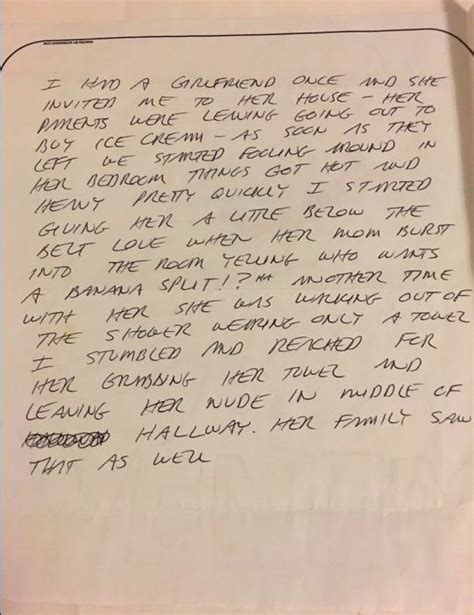 I HAD A GIRLFRIEND ONCE AND SHE
INVITED ME TO HER HOUSE - HER
PARENTS WERE LEAVING GOING OUT TO
BUY ICE CREAM - AS SOON AS THEY
LEFT WE STARTED FOOLING AROUND IN
HER BEDROOM THINGS GOT HOT AND
HEAVY PRETTY QUICKLY I STARTED
GIVING HER A LITTLE BELOW THE
BELT LOVE WHEN HER MOM BURST
INTO THE ROOM YELLING WHO WANTS
A BANANA SPLIT!? ANOTHER TIME
WITH HER SHE WAS WALKING OUT OF
THE SHOWER WEARING ONLY A TOWEL
I STUMBLED AND REACHED FOR
HER GRABBING HER TOWEL AND
LEAVING HER NUDE IN MIDDLE OF
HALLWAY. HER FAMILY SAW
THAT AS WELL